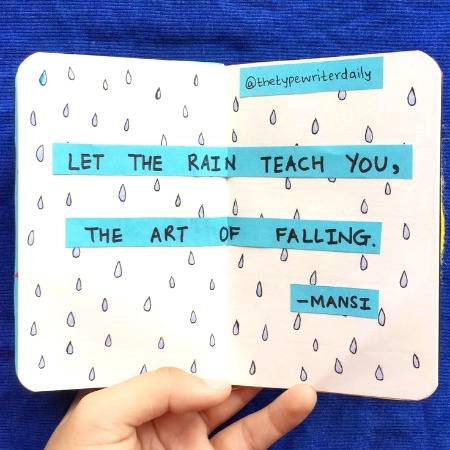 @thetypewriterdaily
LET THE RAIN TEACH YOU,
THE ART OF FALLING.
-MANSI